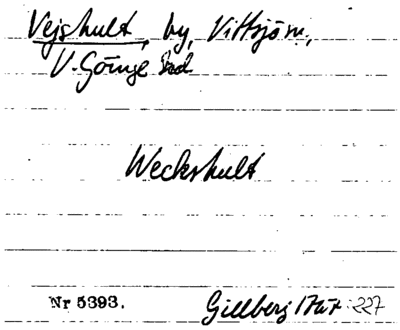 Vejshult, by, Vittsjö sn,
V. Göinge hd
Weckshult
Nr 5393.
Gillberg 1767 227